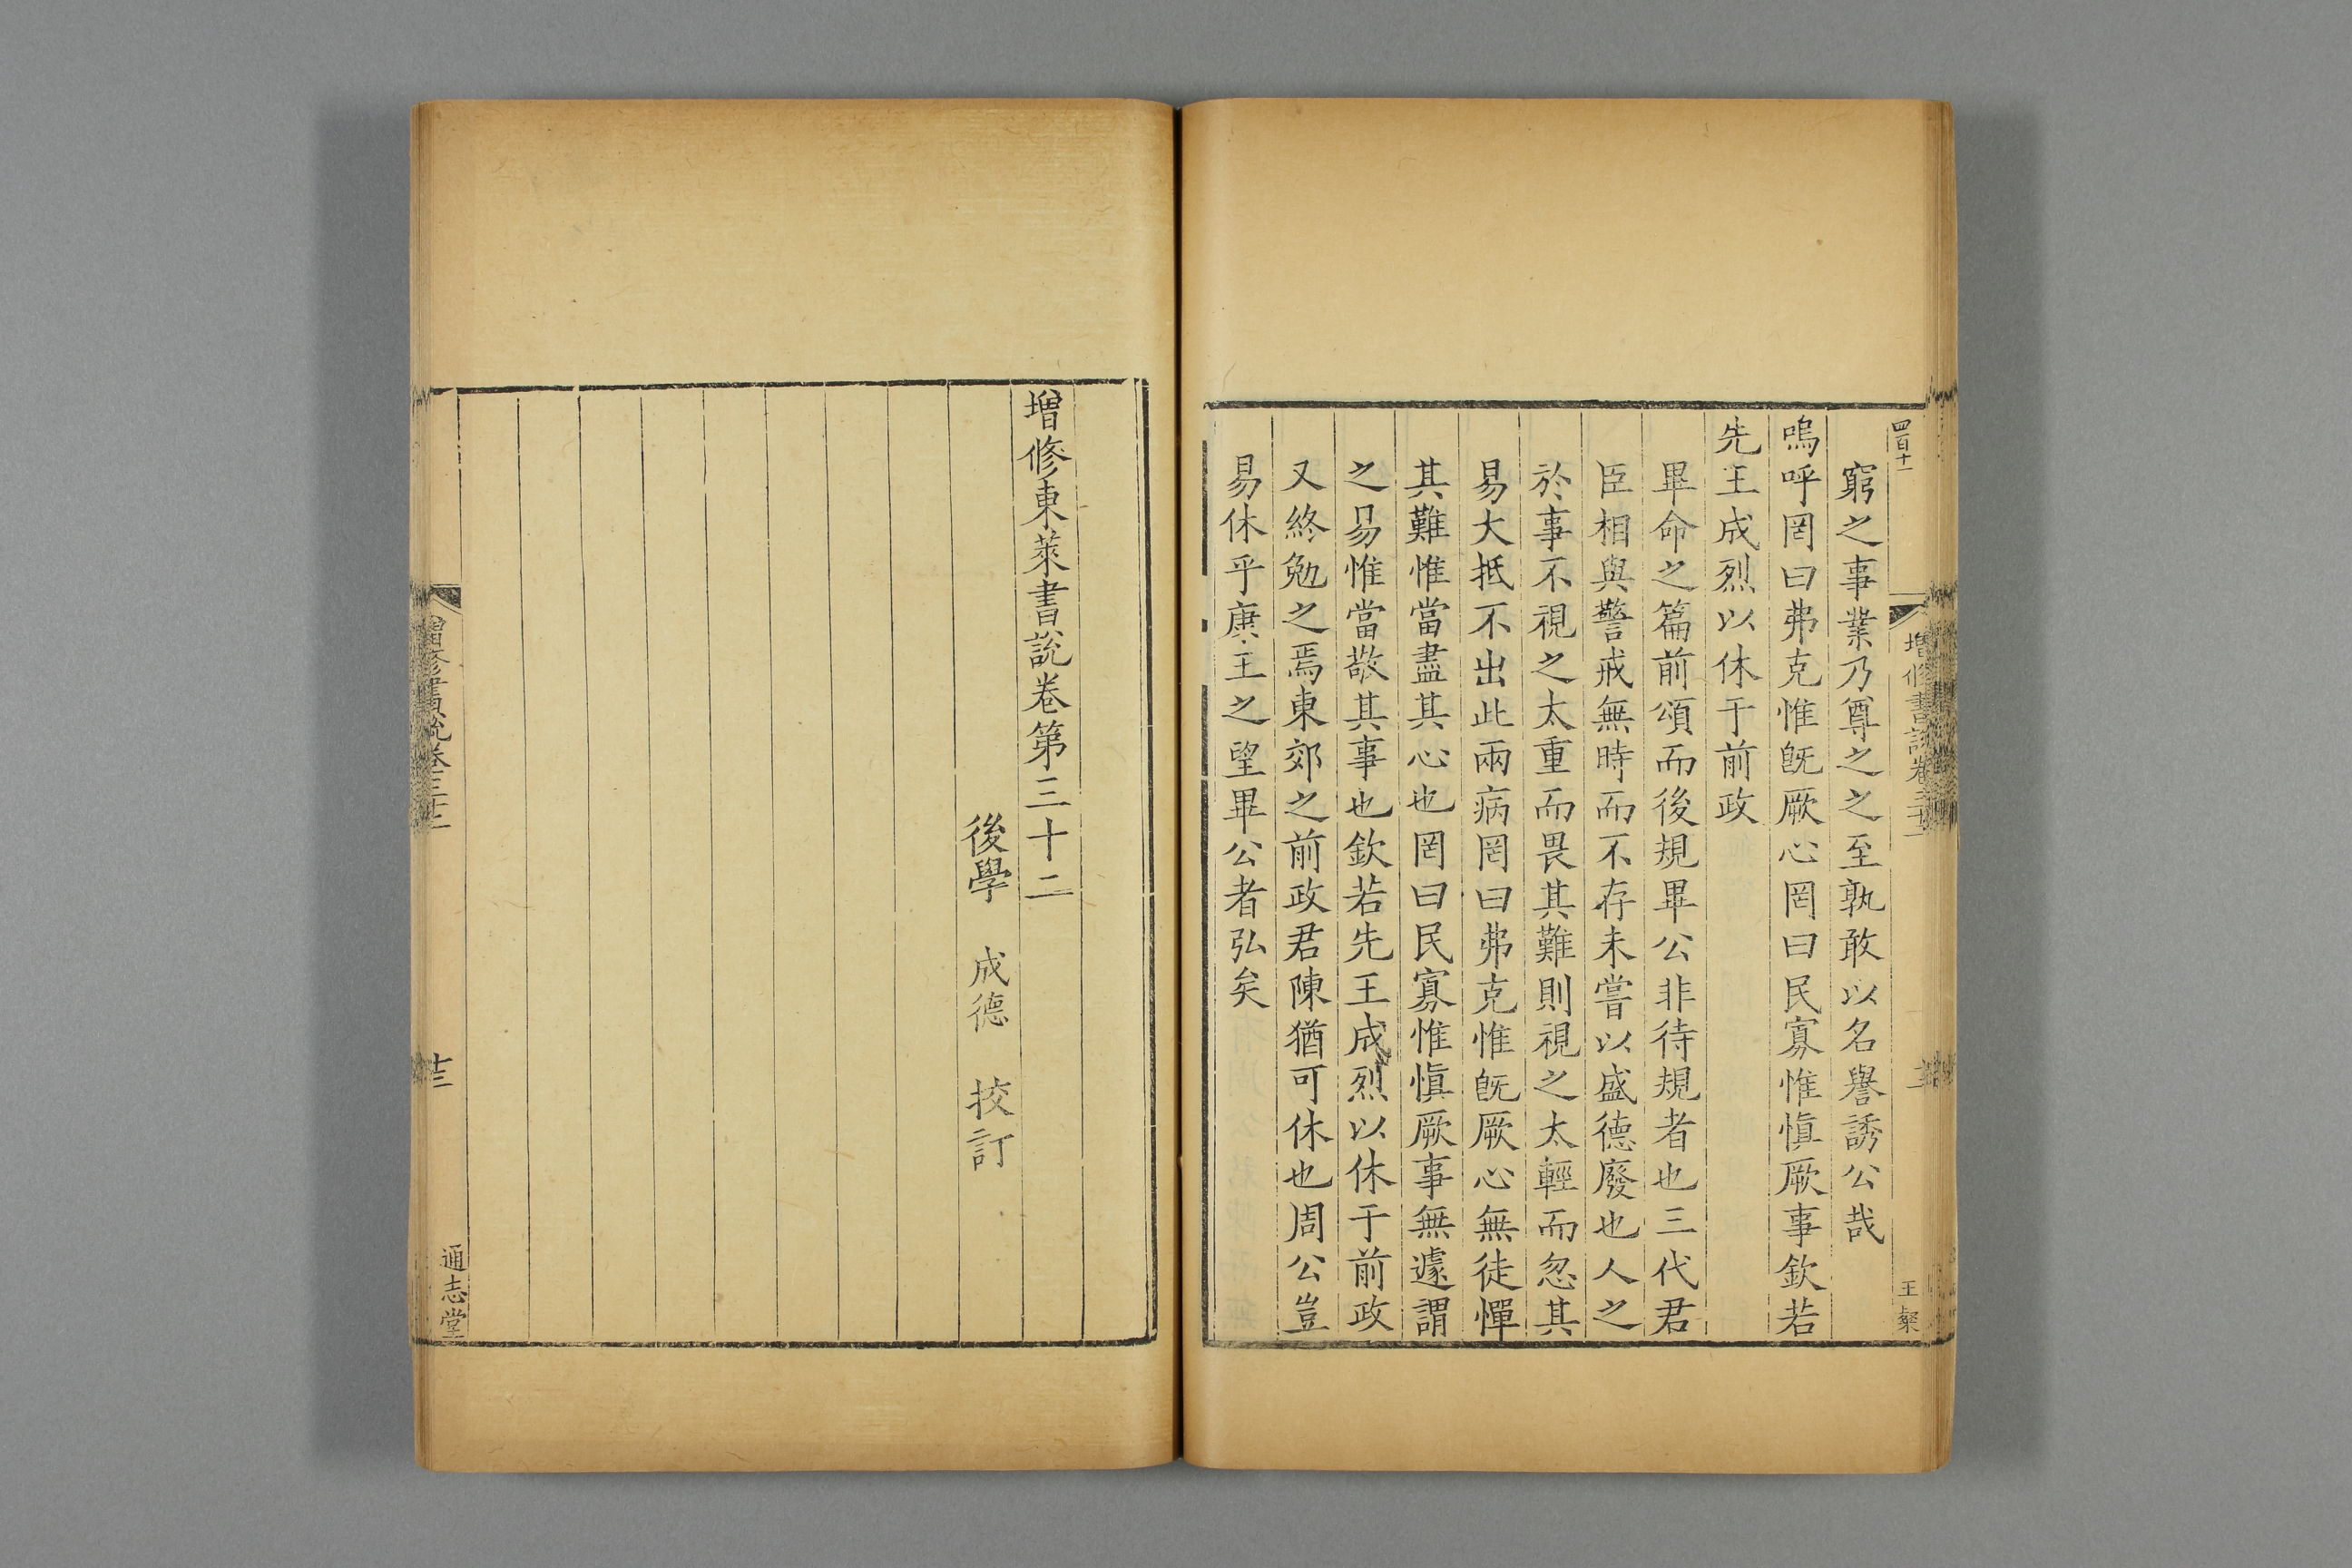 四百十一
增修書說卷三十二
王粲
窮之事業乃尊之之至孰敢以名譽誘公哉
嗚呼罔曰弗克惟旣厥心罔曰民寡惟愼厥事欽若
先王成烈以休于前政
畢命之篇前頌而後規畢公非待規者也三代君
臣相與警戒無時而不存未嘗以盛德廢也人之
於事不視之太重而畏其難則視之太輕而忽其
易大抵不出此兩病罔曰弗克惟旣厥心無徒憚
其難惟當盡其心也罔曰民寡惟愼厥事無遽謂
之易惟當敬其事也欽若先王成烈以休于前政
又終勉之焉東郊之前政君陳猶可休也周公豈
易休乎康王之望畢公者弘矣
增修東萊書說卷第三十二
後學 成德 挍訂
增修書說卷三十二
十三
通志堂